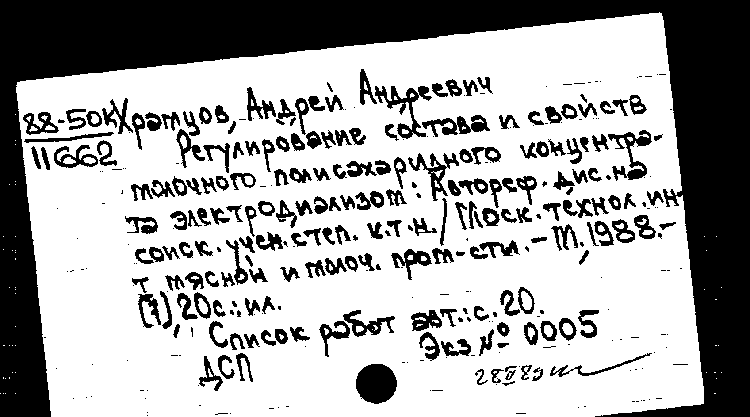 88-50К Храмцов, Андрей Андреевич
11662 Регулирование состава и свойств
молочного полисахаридного концентра-
та электродиализом: Автореф. дис. на
соиск. учен. степ. к.т.н. / Моск. технол. ин-
т мясной и молоч. пром-сти. - М., 1988.-
(1), 20 с.: ил.
Список работ авт.: с. 20.
ДСП Экз № 0005